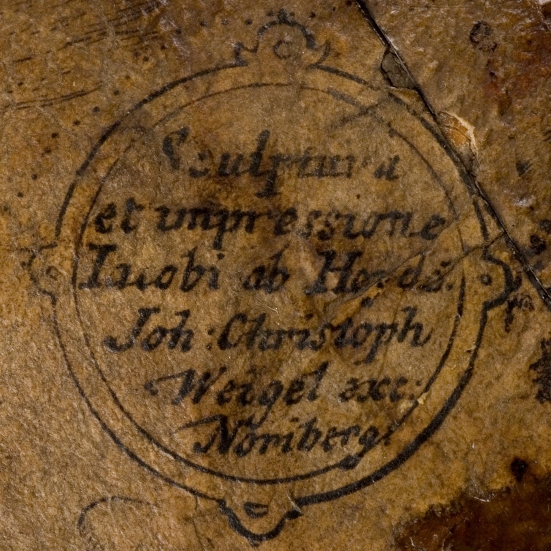 Sculptura
et impressione
Iacobi ab Heyde.
Joh: Christoph
Weigel exc:
Noriberg: